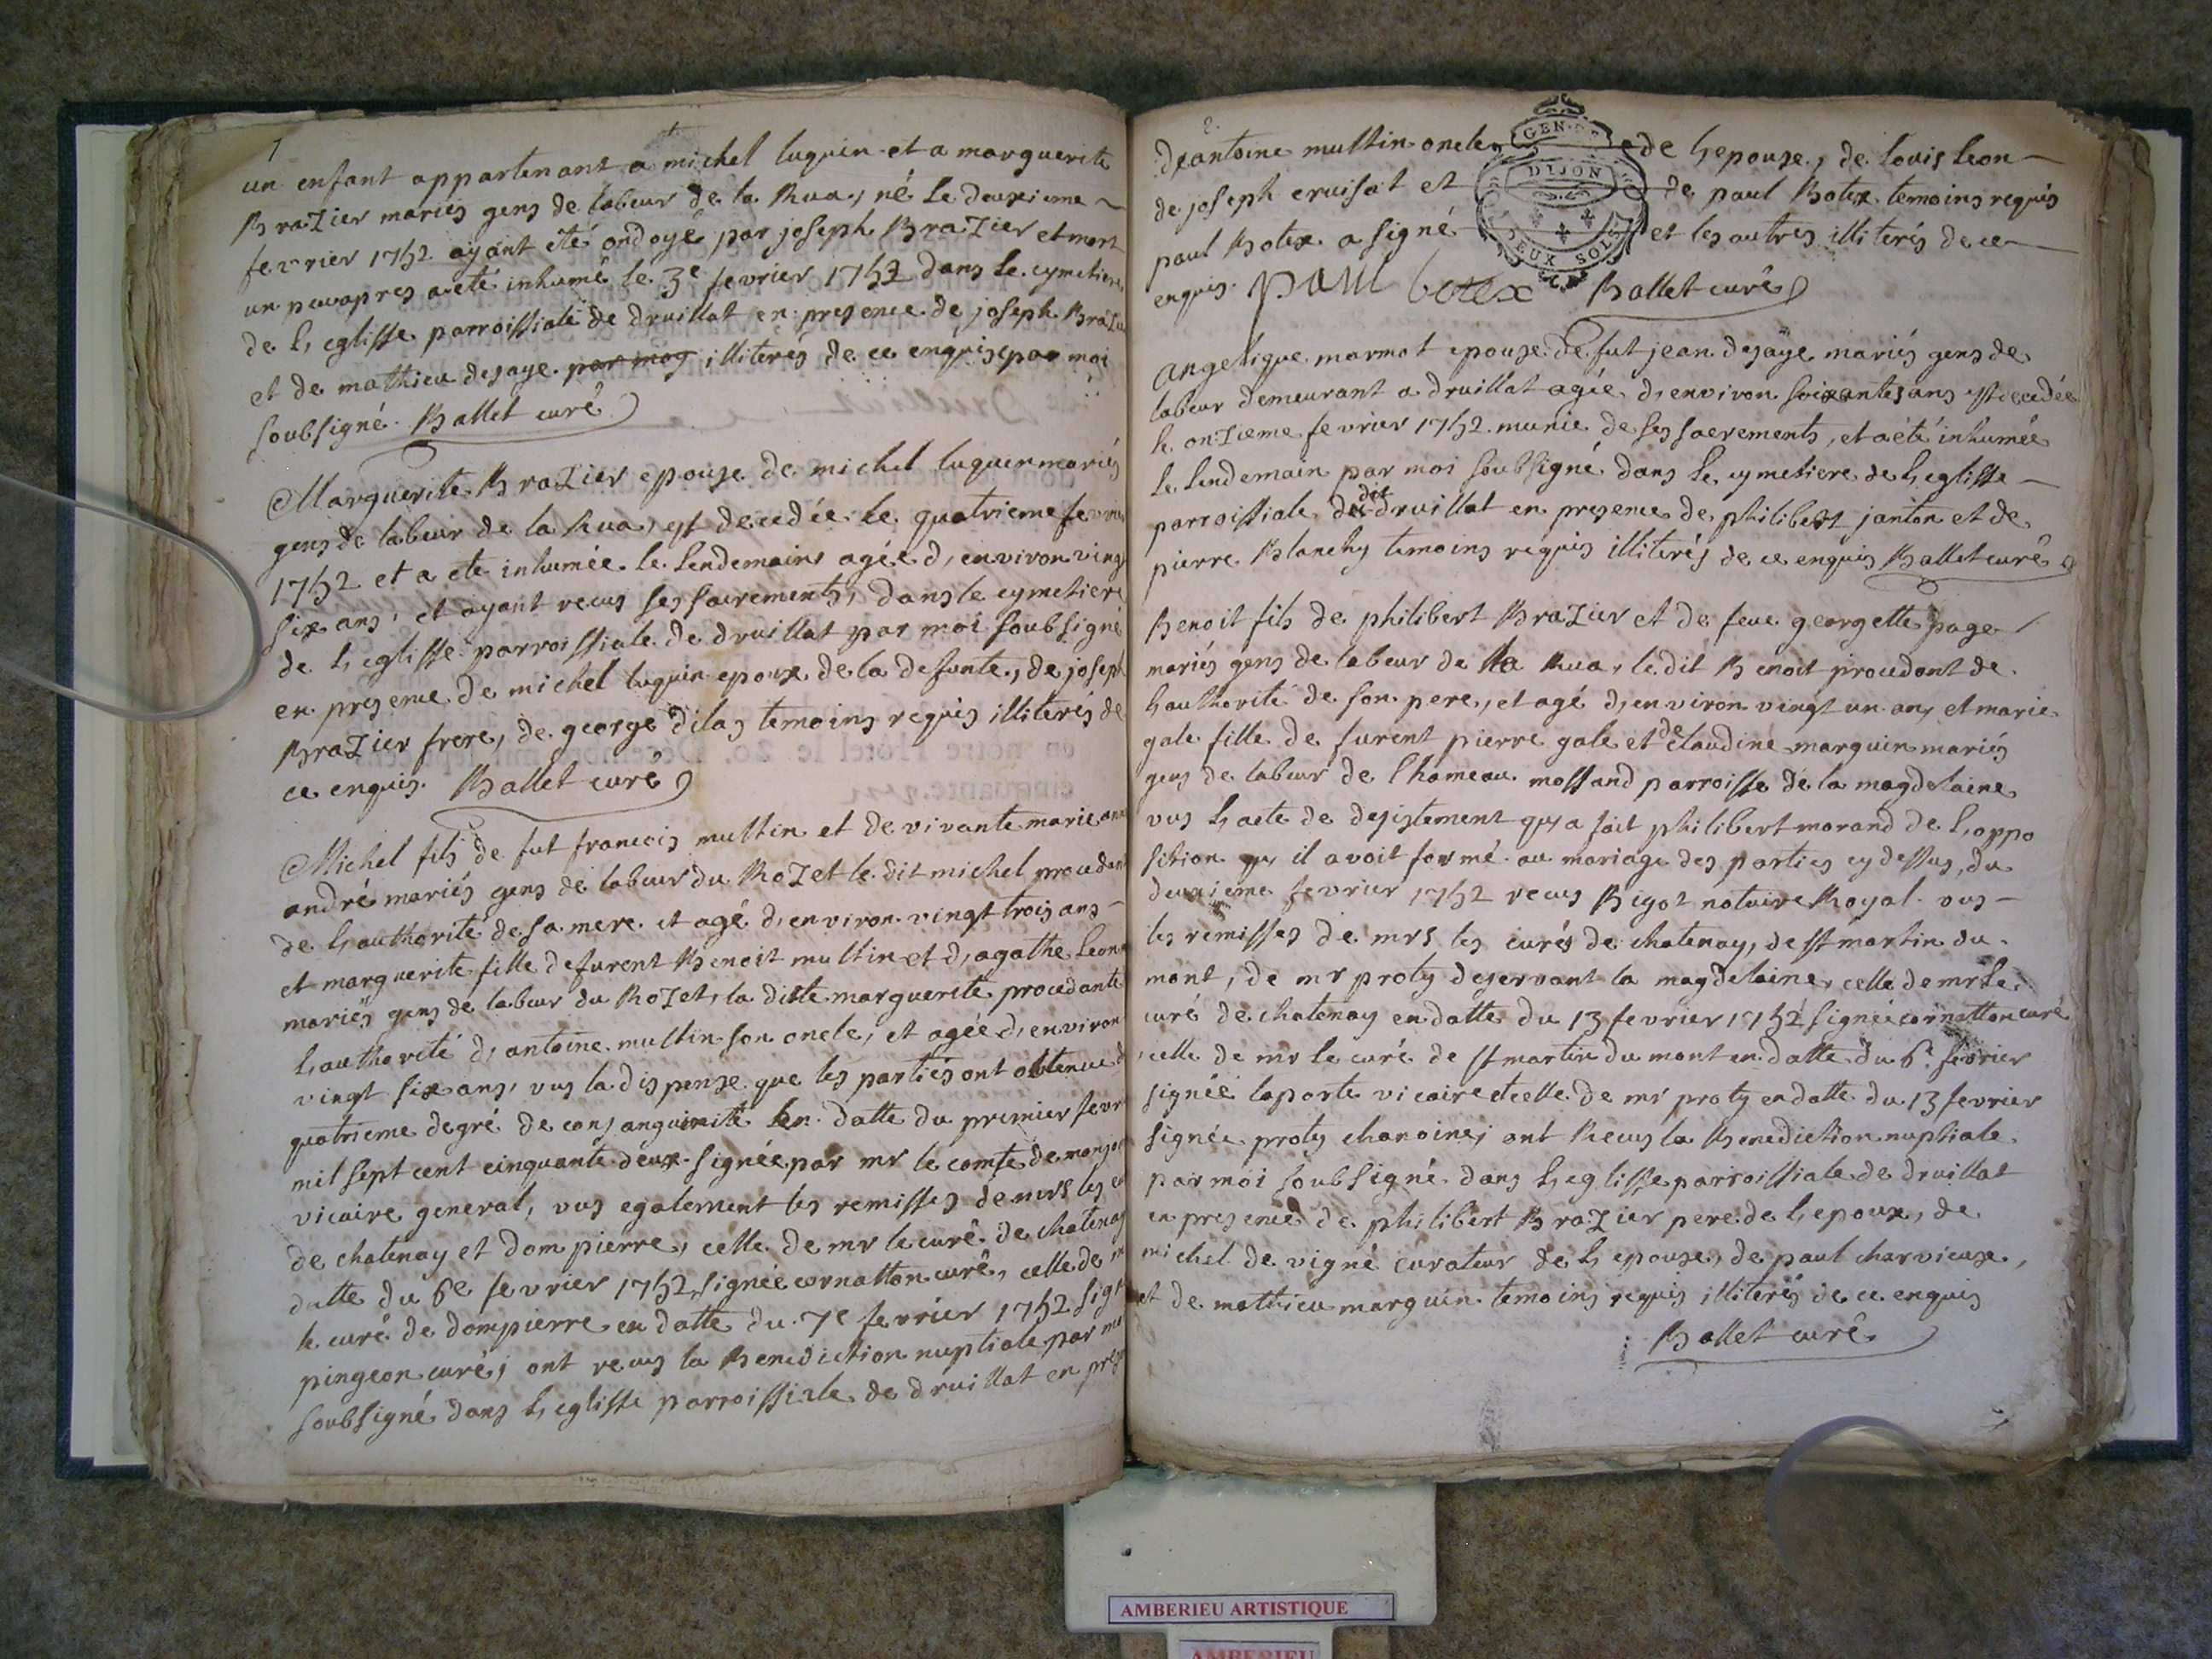 1
un enfant appartenant a michel luquin et a marguerite
Brazier mariés gens de labeur de la Rua, né le deuxieme
fevrier 1752 ayant eté ondoyé par joseph Brazier et mort
un peu apres a eté inhumé le 3e fevrier 1752 dans le cymetiere
de l, eglisse parroissiale de druillat en presence de joseph Brazier
et de mathieu desaye par moy illiterés de ce enquis par moi
soubsigné. Ballet curé
Marguerite Brazier epouse de michel luquin mariés
gens de labeur de la Rua, est decedée le quatrieme fevrier
1752 et a ete inhumée le lendemain agée d, environ vingt
six ans, et ayant recus ses sacrements, dans le cymetiere
de l, eglisse parroissiale de druillat par moi soubsigné
en presence de michel luquin epoux de la defunte, de joseph
Brazier frere, de george dilas temoins requis illiterés de
ce enquis. Ballet curé
Michel fils de fut francois multin et de vivante marie anne
andré mariés gens de labeur du Rozet le dit michel procedant
de l, authorité de sa mere et agé d, environ vingt trois ans
et marguerite fille de furent Benoit multin et d, agathe Leon
mariés gens de labeur du Rozet, la ditte marguerite procedante
l, authorité d, antoine multin son oncle, et agée d, environ
vingt six ans, vus la dispense que les parties ont obtenue d
quatrieme degré de consanguinité en datte du premier fevr
mil sept cent cinquante deux signée par mr le comte de
vicaire general, vus egalement les remisses de mrs les
de chatenay et dompierre, celle de mr le curé de chatenay
datte du 6e fevrier 1752 signée cornatton curé, celle de
le curé de dompierre en datte du 7e fevrier 1752 sig
pingeon curé, ont recus la Benediction nuptiale par moi
soubsigné dans l, eglisse parroissiale de druillat en pres
2.
d, antoine multin oncle de l, epouse, de Louis Leon
de joseph cruisat et de paul Botex temoins requis
paul Botex a signé et les autres illiterés de ce
enquis. paul botex Ballet curé
GEN. DE
DIJON
DEUX SOLS
angelique marmot epouse de fut jean desaÿe mariés gens de
labeur demeurant a druillat agée d, environ soixantes ans est decedée
le onzieme fevrier 1752 munie de ses sacrements, et a eté inhumée
le lendemain par moi soubsigné dans le cymetiere de l, eglisse
parroissiale du dit druillat en presence de philibert janton et de
pierre Blanchy temoins requis illiterés de ce enquis Ballet curé
Benoit fils de philibert Brazier et de feue georgette page
mariés gens de labeur de la Rua, le dit Benoit procedant de
l, authorité de son pere, et agé d, environ vingt un ans et marie
gale fille de furent pierre gale et de claudine marguin mariés
gens de labeur de l hameau mossand parroisse de la magdelaine
vus l, acte de desistement qu, a fait philibert morand de l, oppo
sition qu, il avoit formé au mariage des parties cy dessus, du
deuxieme fevrier 1752 recus Bigot notaire Royal. vus
les remisses de mrs les curés de chatenay, de st martin du
mont, de mr proty deservant la magdelaine, celle de mr le
curé de chatenay en datte du 13 fevrier 1752 signée cornatton curé
celle de mr le curé de st martin du mont en datte du 6e fevrier
signée laporte vicaire et celle de mr proty en datte du 13 fevrier
signée proty chanoine, ont Recus la Benediction nuptiale
par moi soubsigné dans l, eglisse parroissiale de druillat
en presence de philibert Brazier pere de l, epoux, de
michel de vigne curateur de l, epouse, de paul charvieux,
et de mathieu marguin temoins requis illiterés de ce enquis
Ballet curé.
AMBERIEU ARTISTIQUE
AMBERIEU